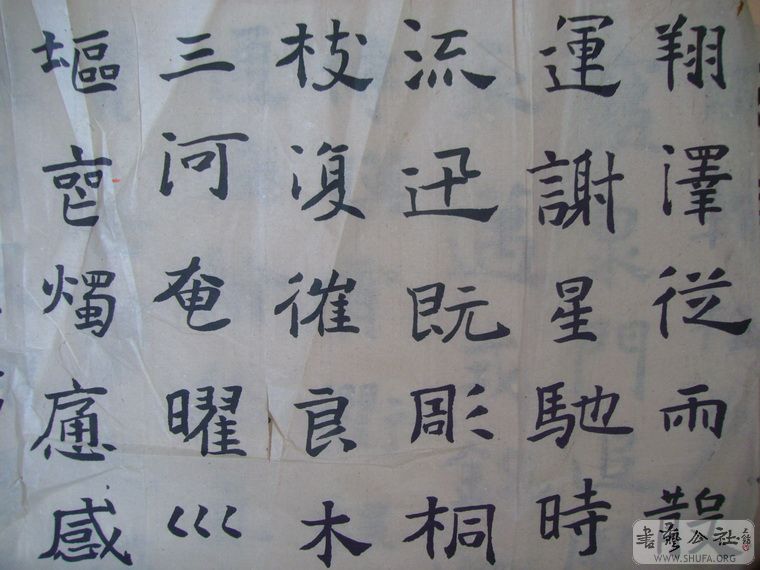 翔澤從雨
運謝星馳時
流迅既彫桐
枝復催良木
三河奄曜巛
塸喪燭應感
書藝公社
WWW.SHUFA.ORG